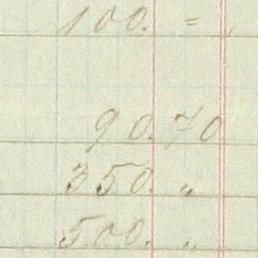 100. =
90.70
350. "
500. "